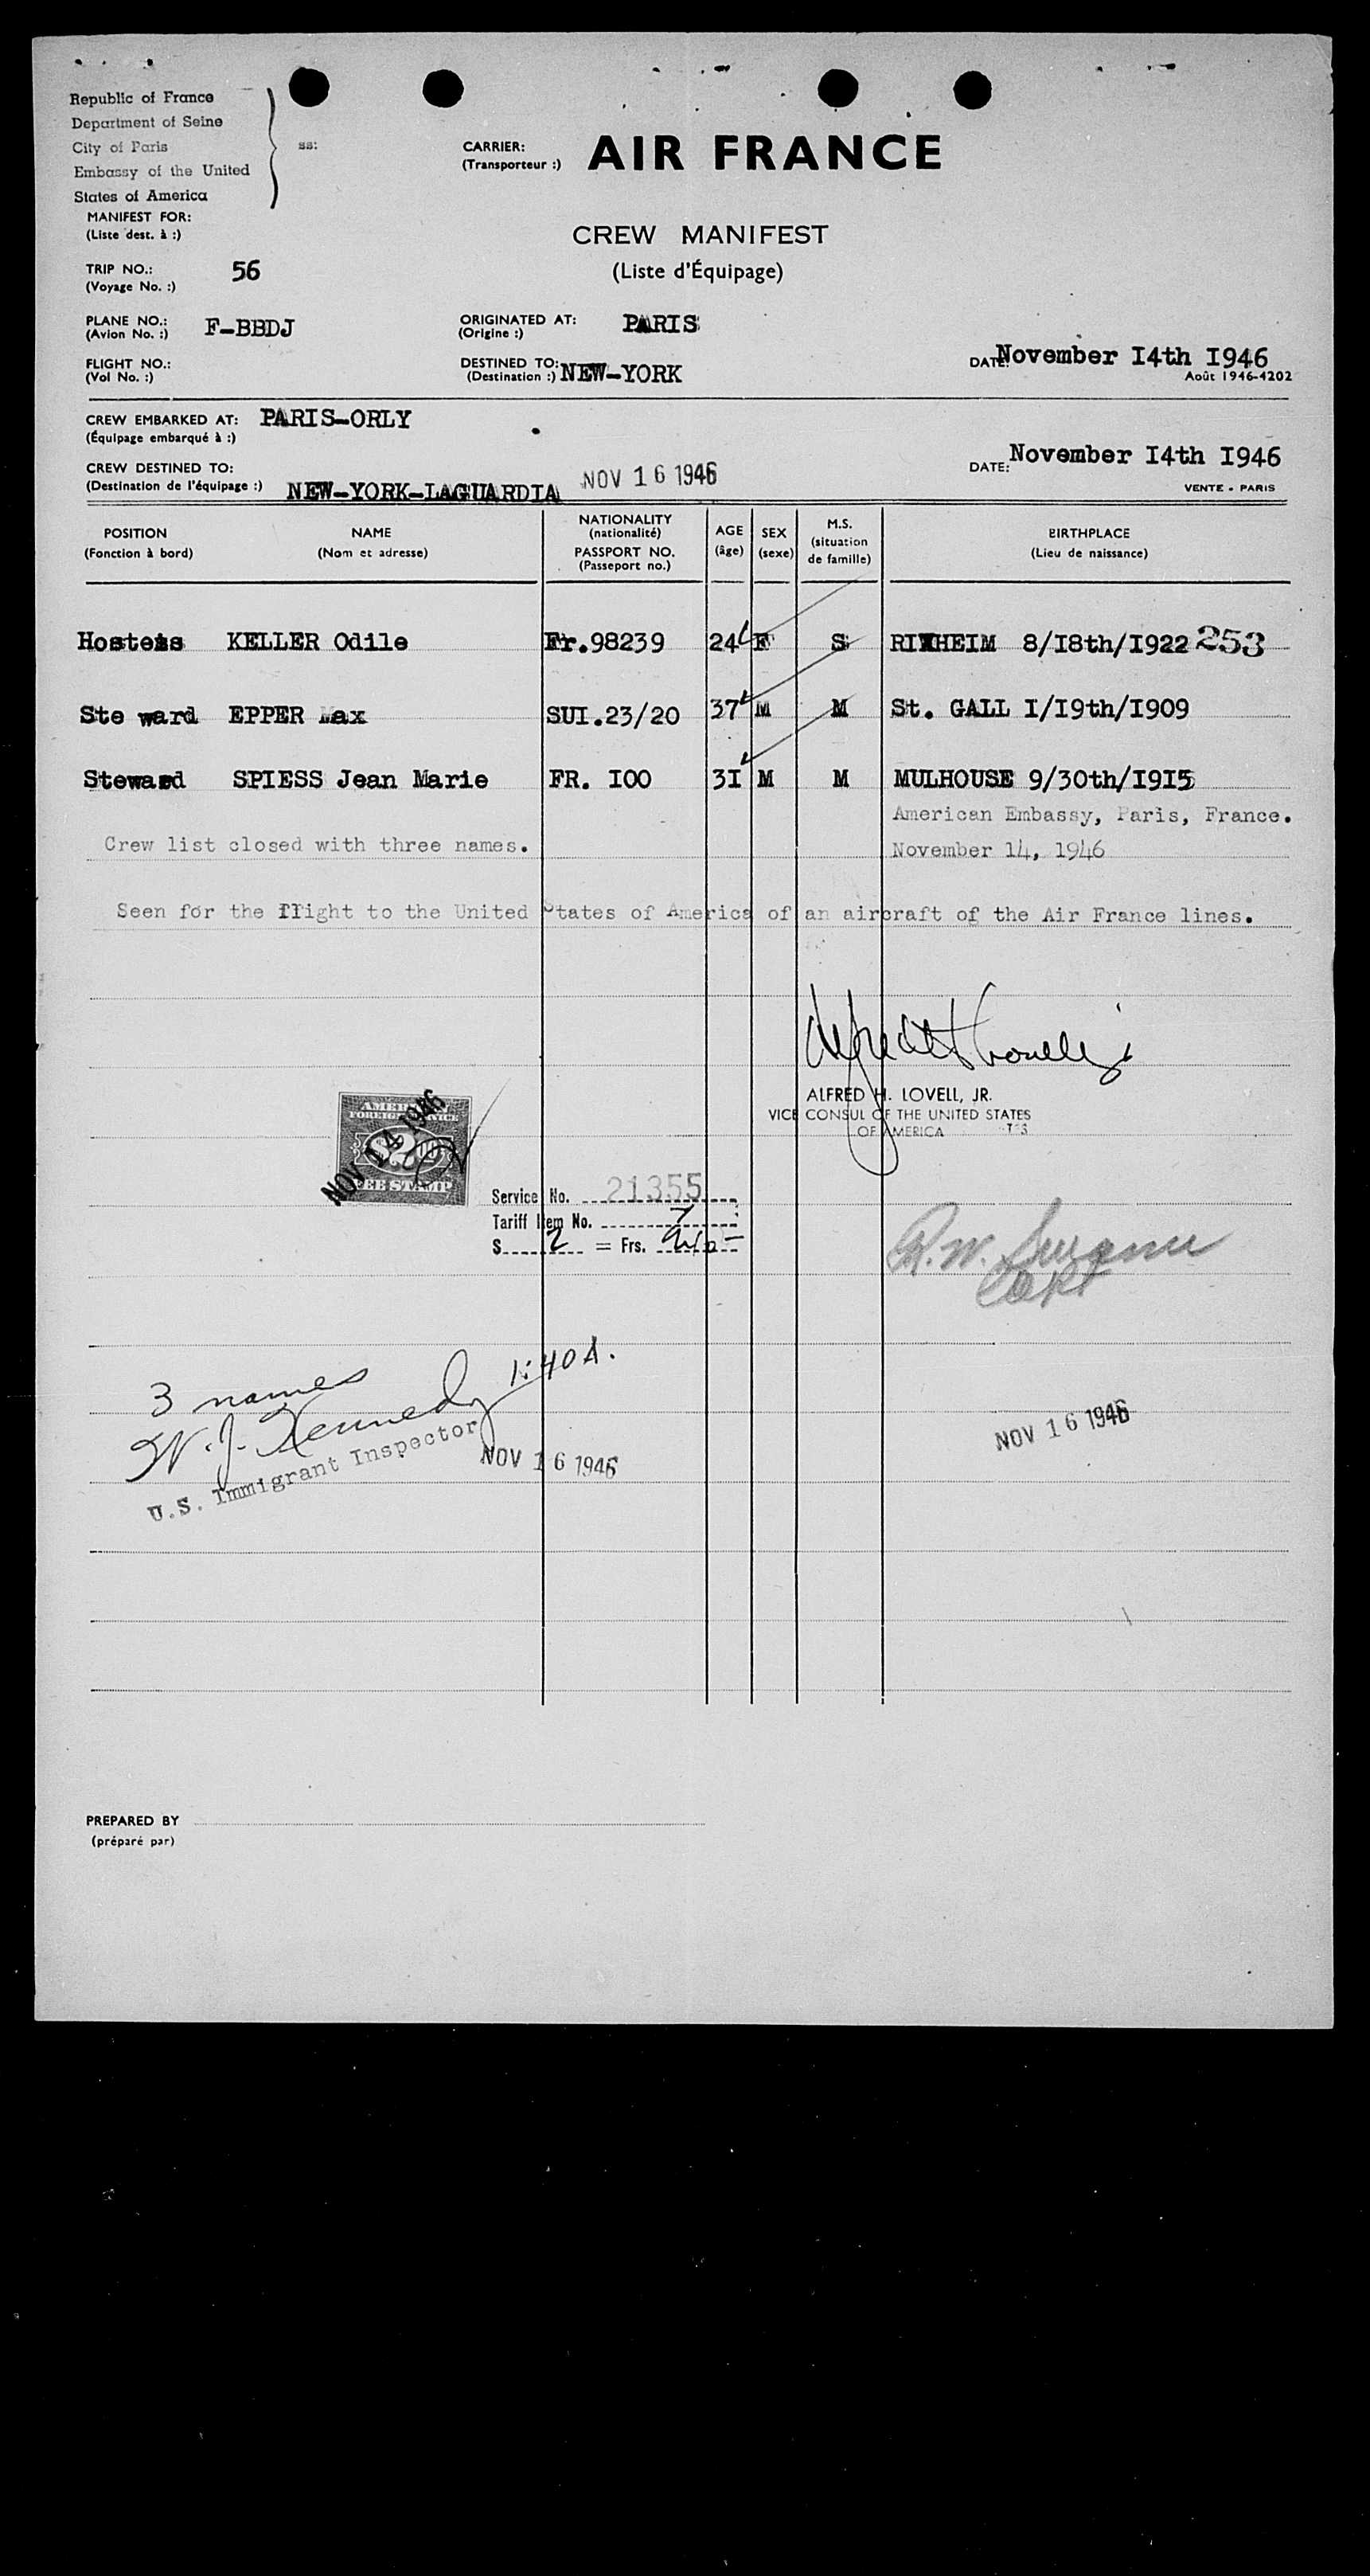 Republic of France
Department of Seine
City of Paris
Embassy of the United
States of America
ss:
CARRIER:
(Transporteur :)
AIR FRANCE
MANIFEST FOR:
(Liste dest. à :)
CREW MANIFEST
(Liste d'Équipage)
TRIP NO.: 56
(Voyage No. :)
PLANE NO.: F-BBDJ
(Avion No. :)
ORIGINATED AT: PARIS
(Origine :)
FLIGHT NO.:
(Vol No. :)
DESTINED TO: NEW-YORK
(Destination :)
DATE: November I4th I946
Août 1946-4202
CREW EMBARKED AT: PARIS-ORLY
(Équipage embarqué à :)
CREW DESTINED TO:
(Destination de l'équipage :) NEW-YORK-LAGUARDIA
NOV 16 1946
DATE: November I4th I946
VENTE - PARIS
POSITION
(Fonction à bord)
NAME
(Nom et adresse)
NATIONALITY
(nationalité)
PASSPORT NO.
(Passeport no.)
AGE
(âge)
SEX
(sexe)
M.S.
(situation
de famille)
BIRTHPLACE
(Lieu de naissance)
Hostess KELLER Odile Fr.98239 24 F S RIXHEIM 8/I8th/I922 253
Ste ward EPPER Max SUI.23/20 37 M M St. GALL I/I9th/I909
Steward SPIESS Jean Marie FR. I00 3I M M MULHOUSE 9/30th/I9I5
American Embassy, Paris, France.
Crew list closed with three names.
November 14, 1946
Seen for the flight to the United States of America of an aircraft of the Air France lines.
ALFRED H. LOVELL, JR.
VICE CONSUL OF THE UNITED STATES
OF AMERICA
AMERICAN
FOREIGN SERVICE
$2.00
FEE STAMP
NOV 14 1946
Service No. 21355
Tariff Item No. 7
$ 2 = Frs.
Capt
3 names
1:40 A.
W. J. Kennedy
U.S. Immigrant Inspector
NOV 16 1946
NOV 16 1946
PREPARED BY
(préparé par)